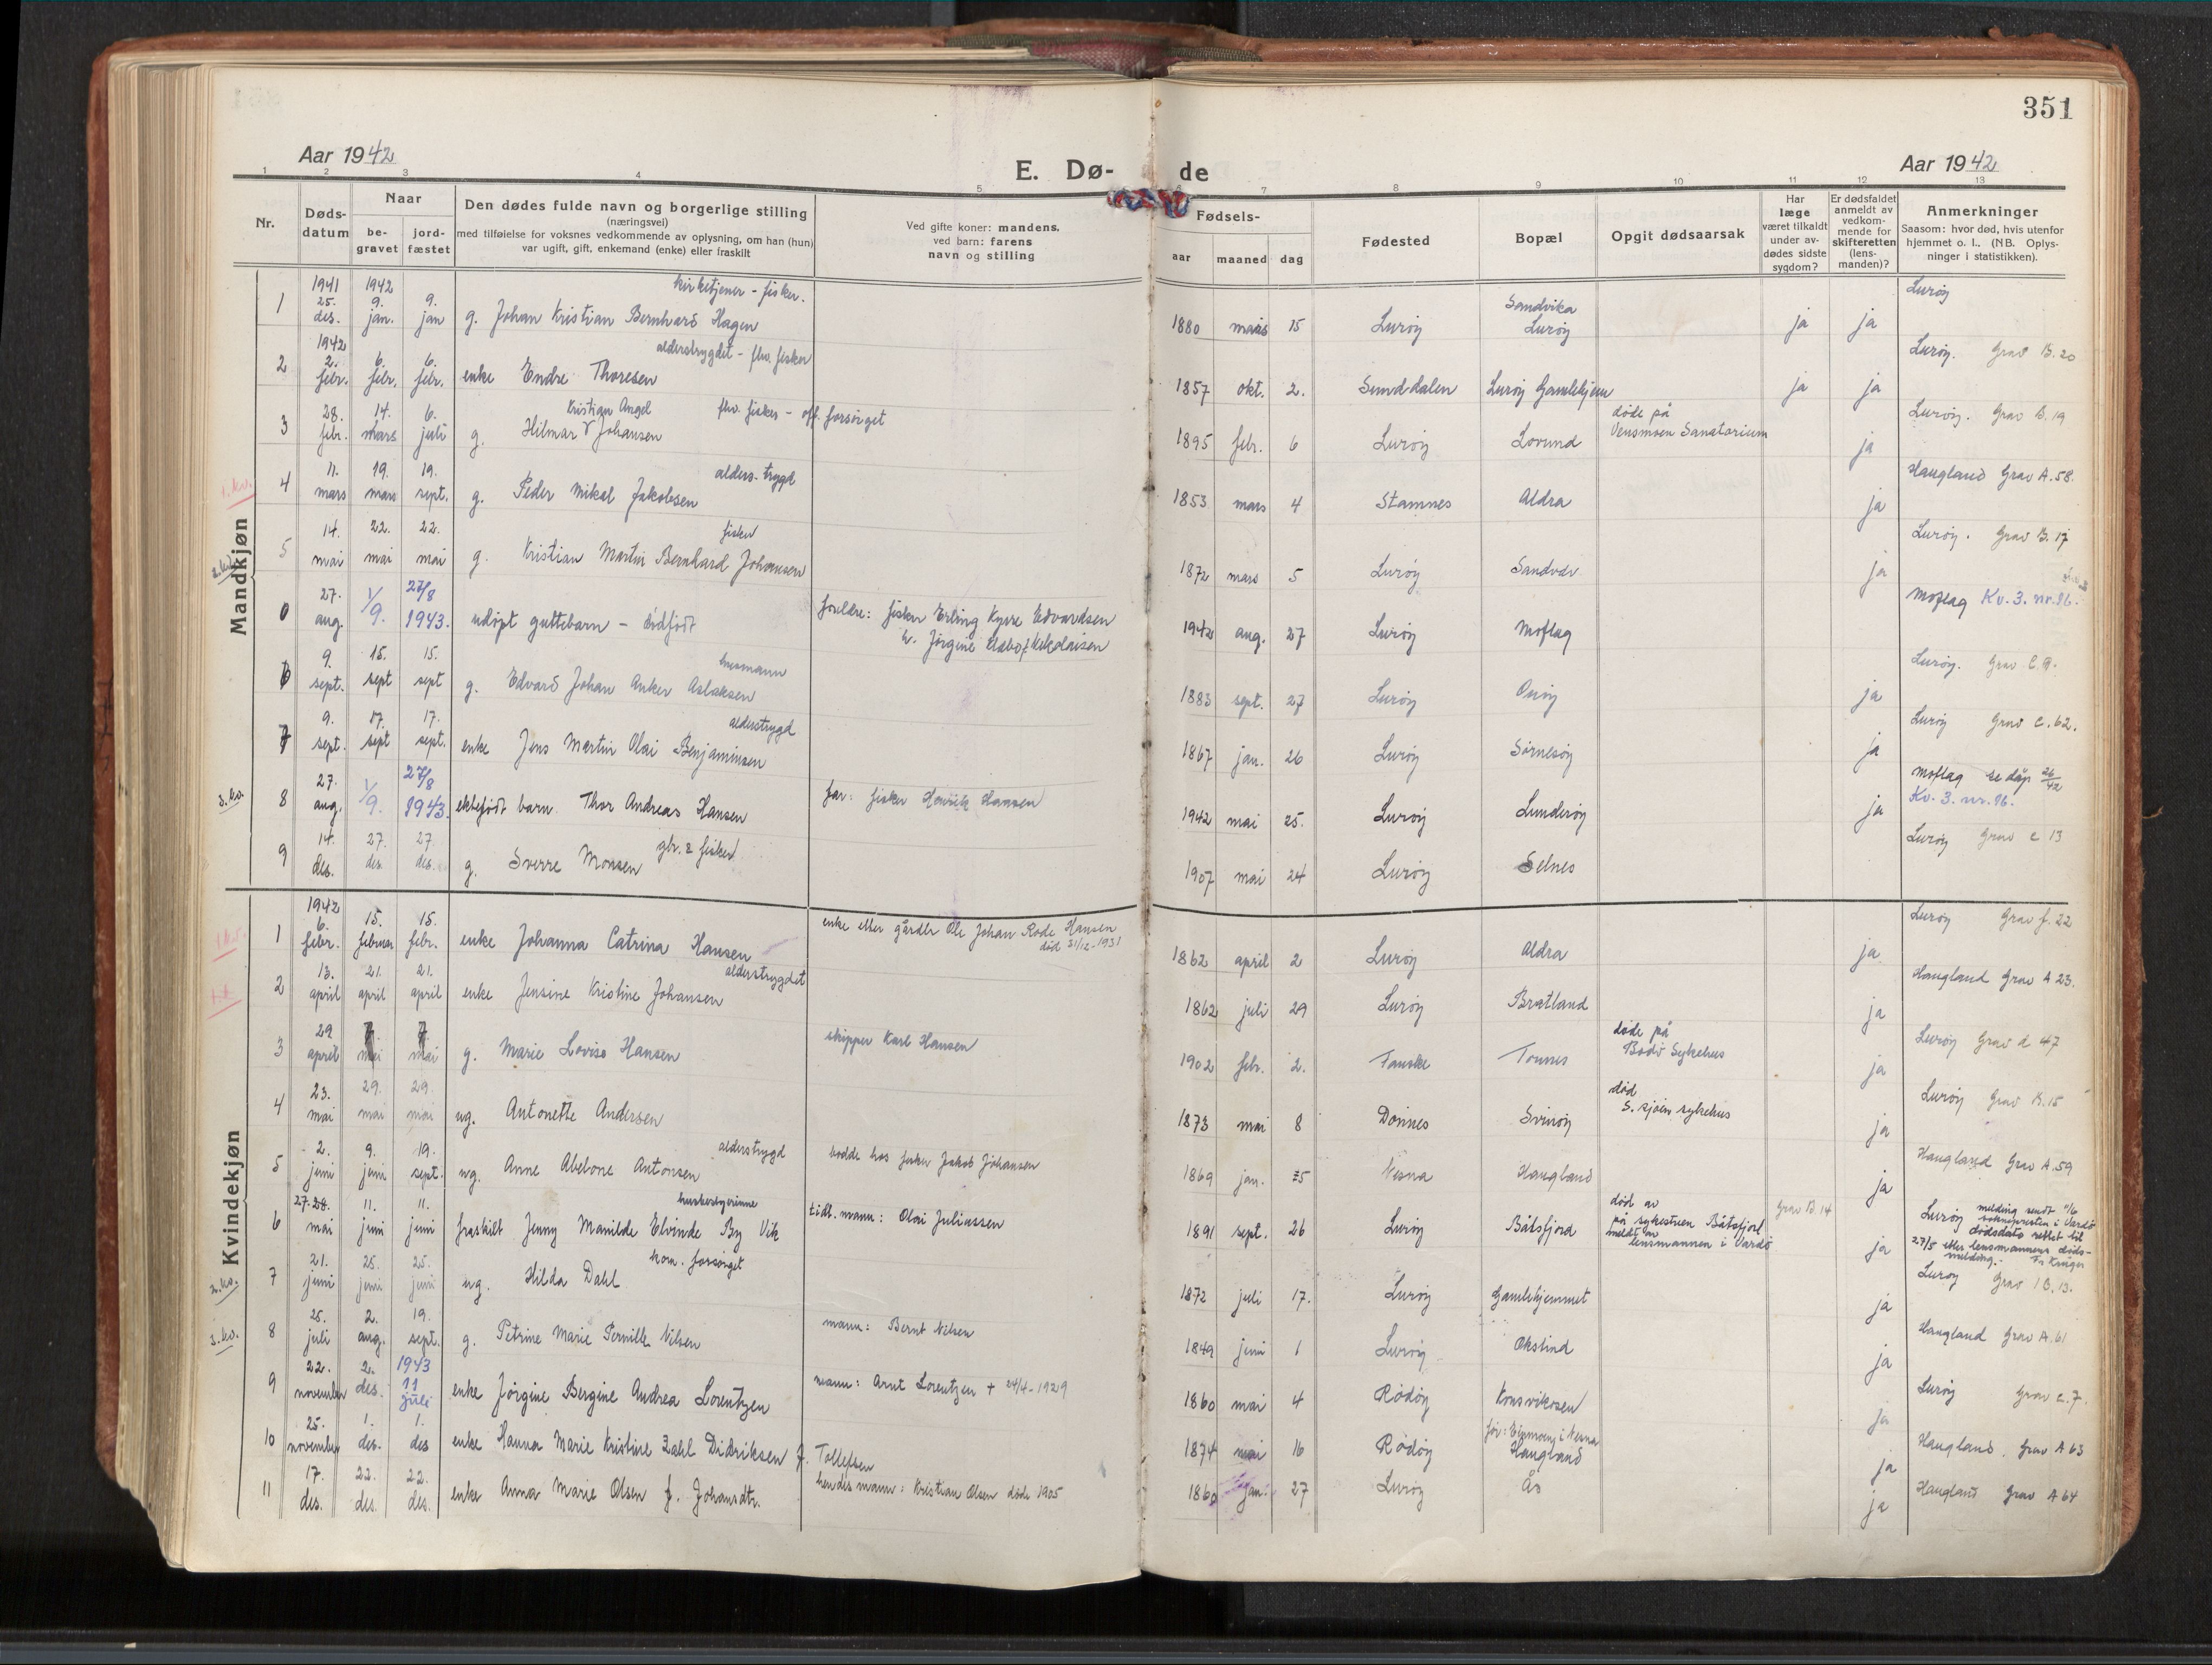 351
Aar 1942
E. Dø-
de
Aar 1942
1 2 3 4 5 6 7 8 9 10 11 12 13
Nr.
Døds-
datum
Naar
be-
gravet
jord-
fæstet
Den dødes fulde navn og borgerlige stilling
(næringsvei)
med tilføielse for voksnes vedkommende av oplysning, om han (hun)
var ugift, gift, enkemand (enke) eller fraskilt
Ved gifte koner: mandens.
ved barn: farens
navn og stilling
Fødsels-
aar maaned dag
Fødested
Bopæl
Opgit dødsaarsak
Har
læge
været tilkaldt
under av-
dødes sidste
sygdom?
Er dødsfaldet
anmeldt av
vedkom-
mende for
skifteretten
(lens-
manden)?
Anmerkninger
Saasom: hvor død, hvis utenfor
hjemmet o. l.. (NB. Oplys-
ninger i statistikken).
Mandkjøn
1.kv.
2.kv.
3.kv.
1941 1942 kirketjener - fisker. Lurøy
1 25. des. 9. jan. 9. jan g. Johan Kristian Bernhard Hagen 1880 mars 15 Lurøy Sandvika Lurøy ja ja
1942 alderstrygdet - fhv. fisker Lurøy. Grav B.20
2 2. febr. 6. febr. 6. febr. enke Endre Thoresen 1857 okt. 2. Sund-dalen Lurøy Gamlehjem ja ja
Kristian Angel fhv. fisker - off. forsørget døde på Lurøy. Grav B.19
3 28. febr. 14. mars 6. juli g. Hilmar V Johansen 1895 febr. 6 Lurøy Lovund Vensmoen Sanatorium ja
alders-trygd Haugland Grav A.58.
4 11. mars 19. mars 19. sept. g. Peder Mikal Jakobsen 1853 mars 4 Stamnes Aldra ja
fisker Lurøy. Grav B.17
5 14. mai 22. mai 22. mai g. Kristian Martin Bernhard Johansen 1872 mars 5 Lurøy ja
foreldre: fisker Erling Kyrre Edvardsen Moflag Kv. 3. nr. 16.
0 27. aug. 1/9. 27/8 1943. udøpt guttebarn - dødfødt 1942 aug. 27 Lurøy Moflag
h. Jørgine Nikolaisen
husmann Lurøy. Grav C.9.
6 9. sept. 15. sept 15. sept g. Edvard Johan Anker Aslaksen 1883 sept. 27 Lurøy Onøy ja
alderstrygd Lurøy Grav C.62.
7 9. sept. 17. sept 17. sept. enke Jens Martin Olai Benjaminsen 1867 jan. 26 Lurøy Sørnesøy ja
Moflag se dåp 26/42
8 27. aug. 1/9. 27/8 1943. ektefødt barn Thor Andreas Hansen far: fisker Henrik Hansen 1942 mai 25. Lurøy Lunderøy ja Kv. 3. nr. 16.
gbr. & fisker Lurøy Grav C 13
9 14. des. 27. des. 27 des. g. Sverre Monsen 1907 mai 24 Lurøy Selnes
Kvindekjøn
1.kv.
2.kv.
3.kv.
1942 enke etter gårdbr Ole Johan Rode Hansen Lurøy Grav f. 22
død 31/12-1931
1 6. febr. 15. februar 15. febr. enke Johanna Catrina Hansen 1862 april 2 Lurøy Aldra ja
alderstrygdet Haugland Grav A 23.
2 13. april 21. april 21. april enke Jensine Kristine Johansen 1862 juli 29 Lurøy Bratland ja
skipper Karl Hansen døde på Lurøy Grav d 47
3 29 april 7 mai 7 mai g. Marie Lovise Hansen 1902 febr. 2. Fauske Tonnes Bodø Sykehus ja
død Lurøy Grav B.15
4 23. mai 29. mai 29. mai ug. Antonette Andersen 1873 mai 8 Dønnes Svinøy S.sjøen sykehus ja
alderstrygd bodde hos fisker Jakob Johansen Haugland Grav A.59
5 2. juni 9. juni 19. sept. ug. Anne Abelone Antonsen 1869 jan. 25 Nesna Haugland ja
husbestyrerinne tidl. mann: Olai Juliussen død av Grav B.14 Lurøy melding sendt
6 27. 28. mai 11. juni 11. juni fraskilt Jenny Manilde Elvinde By Vik 1891 sept. 26 Lurøy Båtsfjord på sykestuen Båtsfjord ja
meldt av lensmannen i Vardø
soknepresten i Vardø dødsdato rettet til
27/5 etter lensmannens døds-
melding. Fr Krüger
kom. forsørget Lurøy Grav B.13.
7 21. juni 25. juni 25. juni ug. Hilda Dahl 1872 juli 17. Lurøy Gamlehjemmet ja
mann: Bernt Nilsen Haugland Grav A.61
8 25. juli 2. aug. 19. sept. g. Petrine Marie Pernille Nilsen 1849 juni 1 Lurøy Økstind ja
mann: Arnt Lorentzen + 24/4-1929 Lurøy Grav c.7.
9 22. november 2. des. 1943 11 juli enke Jørgine Bergine Andrea Lorentzen 1860 mai 4 Rødøy Konsvikosen ja
Haugland. Grav A 63
10 25. november 1. des. 1. des enke Hanna Marie Kristine Zahl Didriksen f. Tollefsen 1874 mai 16 Rødøy Haugland ja
hendes mann: Kristian Olsen døde 1905 Haugland Grav A 64
11 17. des. 22. des. 22. des. enke Anna Marie Olsen f. Johansdtr. 1860 jan. 27 Lurøy Ås ja